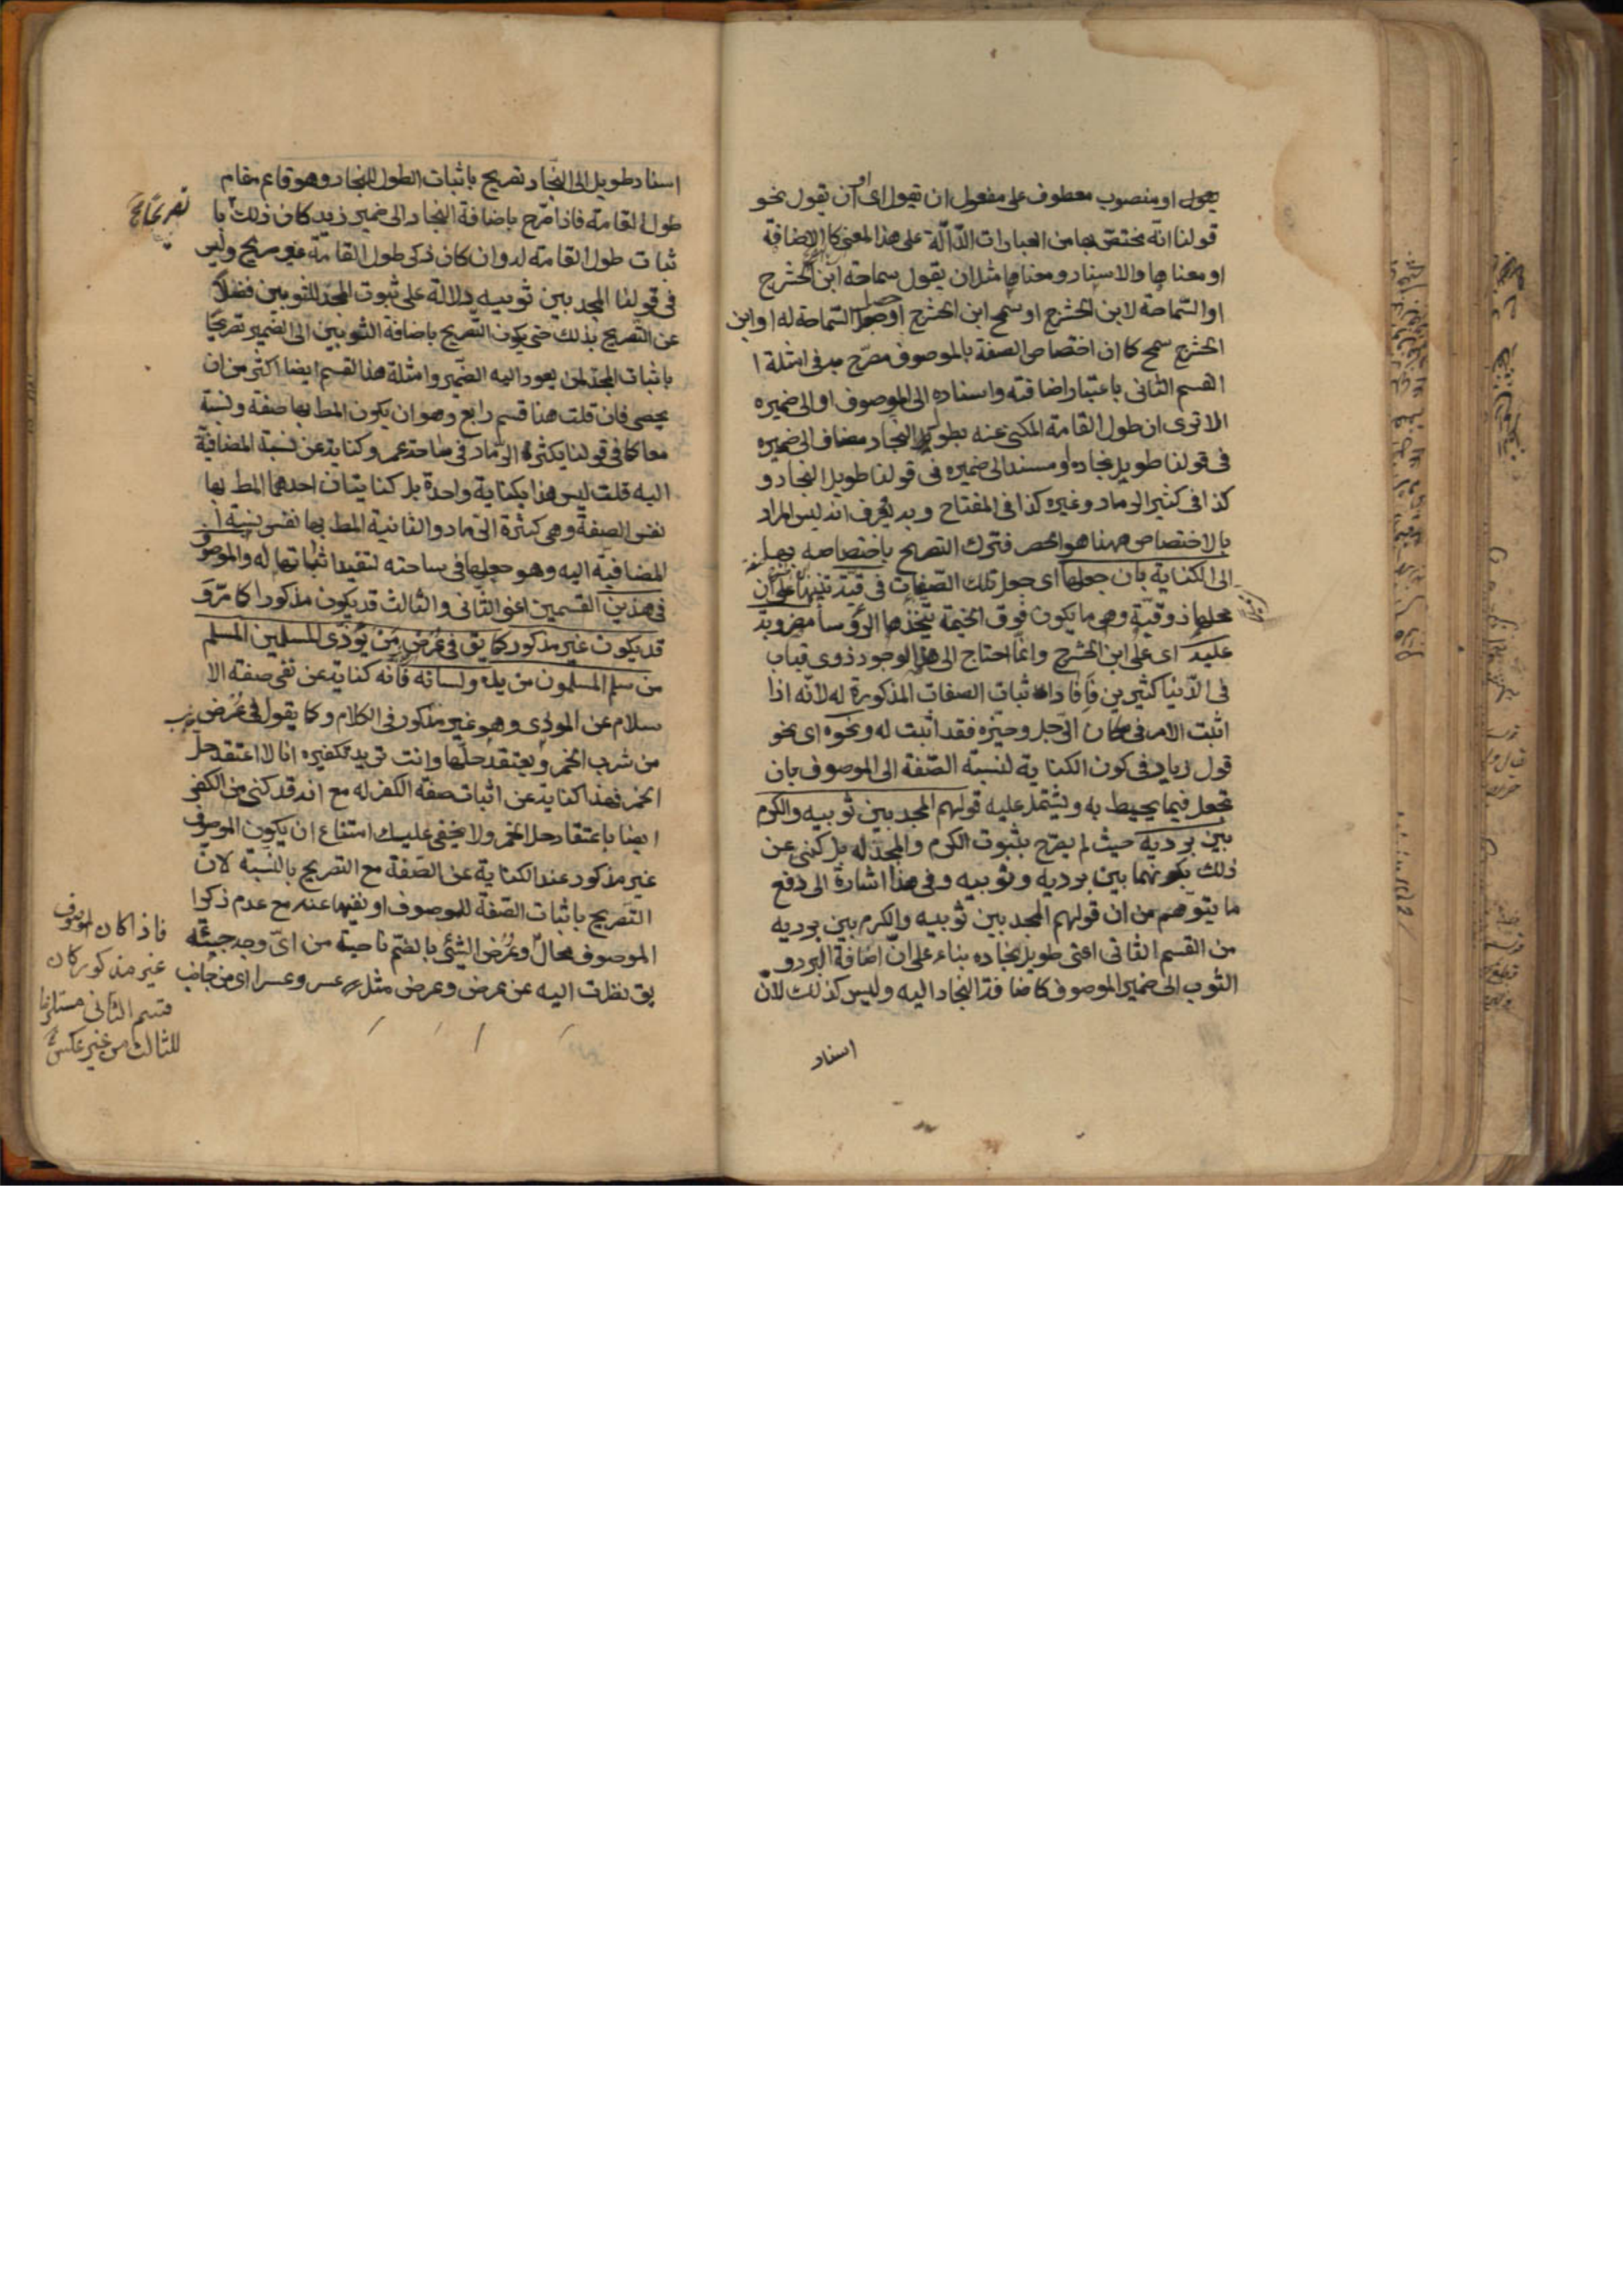 يقول او منصوب معطوف على مفعول ان يقول اى او ان يقول نحو
قولنا انّه مختصّ بها من العبارات الدّالّة على هذا المعنى كالاضافة
او معناها والاسناد ومعناها مثل ان يقول سماحة ابن الحشرج
او السّماحة لابن الحشرج او سمح ابن الحشرج او حصل السّماحة له او ابن
الحشرج سمح كما ان اختصاص الصفة بالموصوف مصرّح به فى امثلة ا
القسم الثانى باعتبار اضافته واسناده الى الموصوف او الى ضميره
الا ترى ان طول القامة المكنى عنه بطول النجاد مضاف الى ضميره
فى قولنا طويل نجاده او مسند الى ضميره فى قولنا طويل النجاد و
كذا فى كثير الرماد وغيره كذا فى المفتاح وبه يعرف انه ليس المراد
بالاختصاص ههنا هو الحصر فترك التصريح باختصاصه بها
الى الكناية بان جعلها اى جعل تلك الصّفات فى قبّة تنبيها على ان
محلها ذو قبّة وهى ما يكون فوق الخيمة يتّخذها الرّؤسا مضروبة
عليه اى على ابن الحشرج وانّما احتاج الى هذا لوجود ذوى قباب
فى الدّنيا كثيرين فافاد اثبات الصفات المذكورة له لانّه اذا
اثبت الامر فى مكان الرّجل وحيّزه فقد اثبت له ونحوه اى نحو
قول زياد فى كون الكناية لنسبة الصّفة الى الموصوف بان
تجعل فيما يحيط به ويشتمل عليه قولهم المجد بين ثوبيه والكرم
بين برديه حيث لم يصرّح بثبوت الكرم والمجد له بل كنى عن
ذلك بكونهما بين برديه وثوبيه وفى هذا اشارة الى دفع
ما يتوّهم من ان قولهم المجد بين ثوبيه والكرم بين برديه
من القسم الثانى اعنى طويل نجاده بناء على انّ اضافة البرد و
الثوب الى ضمير الموصوف كاضافة النجاد اليه وليس كذلك لانّ
اسناد
اسناد طويل الى النجاد تصريح باثبات الطول للنجاد وهو قايم مقام
طول القامة فاذا صّرح باضافة النجاد الى ضمير زيد كان ذلك با
ثبات طول القامة له وان كان ذكر طول القامة غير صريح وليس
فى قولنا المجد بين ثوبيه دلالة على ثبوت المجد للثوبين فضلاً
عن التّصريح بذلك حتى يكون التصريح باضافة الثوبين الى الضمير تصريحًا
باثبات المجد لمن يعود اليه الضّمير وامثلة هذا القسم ايضا اكثر من ان
يحصى فان قلت هنا قسم رابع وهو ان يكون المط بها صفة ونسبة
معا كما فى قولنا يكثر الرّماد فى ساحة عمرو كناية عن نسبة المضافية
اليه قلت ليس هذا بكناية واحدة بل كنايتان احدهما المط بها
نفس الصفة وهى كثرة الرّماد والثانية المط بها نفس نسبة ا
المضافية اليه وهو جعلها فى ساحته لتفيد اثباتها له والموصوف
فى هذين القسمين اعنى الثانى والثالث قد يكون مذكورا كما مرّ و
قد يكون غير مذكور كما يق فى عُرض من يُؤذى المسلمين المسلم
من سلم المسلمون من يده ولسانه فانّه كناية عن نفى صفة الا
سلام عن الموذى وهو غير مذكور فى الكلام وكما يقول فى عُرض
من شرب الخمر ويعتقد حلّها وانت تريد تكفيره انا لا اعتقد حلّ
الخمر فهذا كناية عن اثبات صفة الكفر له مع انه قد كنى من الكفر
ايضا باعتقاد حل الخمر ولا يخفى عليك امتناع ان يكون الموصوف
غير مذكور عند الكناية عن الصّفة مع التصريح بالنّسبة لان
التّصريح باثبات الصّفة للموصوف او نفيها عنه مع عدم ذكرا
الموصوف محالّ وعُرض الشئ بالضمّ ناحيته من اىّ وجه جئته
يق نظرت اليه عن عرض وعرض مثل عسر وعسر اى من جانب
فاذا كان الموصوف
غير مذكور كان
قسم الثانى مستلزما
للثالث من غير عكس